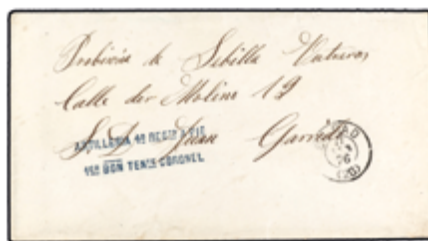 Probincia de Sebilla Utrera
Calle der Molino 19
S. D. Juan Garrido
ARTILLERIA 4º REGIMIENTO
1er BON TENTE CORONEL
76